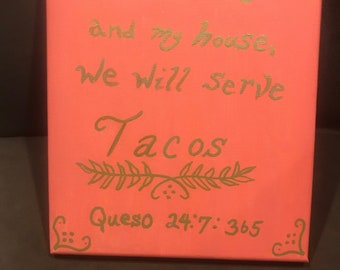 and my house,
we will serve
Tacos
Queso 24:7:365